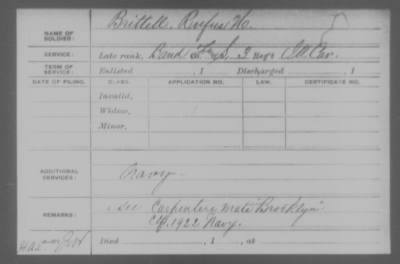 NAME OF SOLDIER: Brittell, Rufus H.
SERVICE: Late rank, Band, 3 Reg't Ill. Cav.
TERM OF SERVICE: Enlisted , 1 Discharged , 1
DATE OF FILING. CLASS. APPLICATION NO. LAW. CERTIFICATE NO.
Invalid,
Widow,
Minor,
ADDITIONAL SERVICES: Navy
REMARKS: see Carpenters Mate "Brooklyn"
1922 Navy.
Died , 1 , at